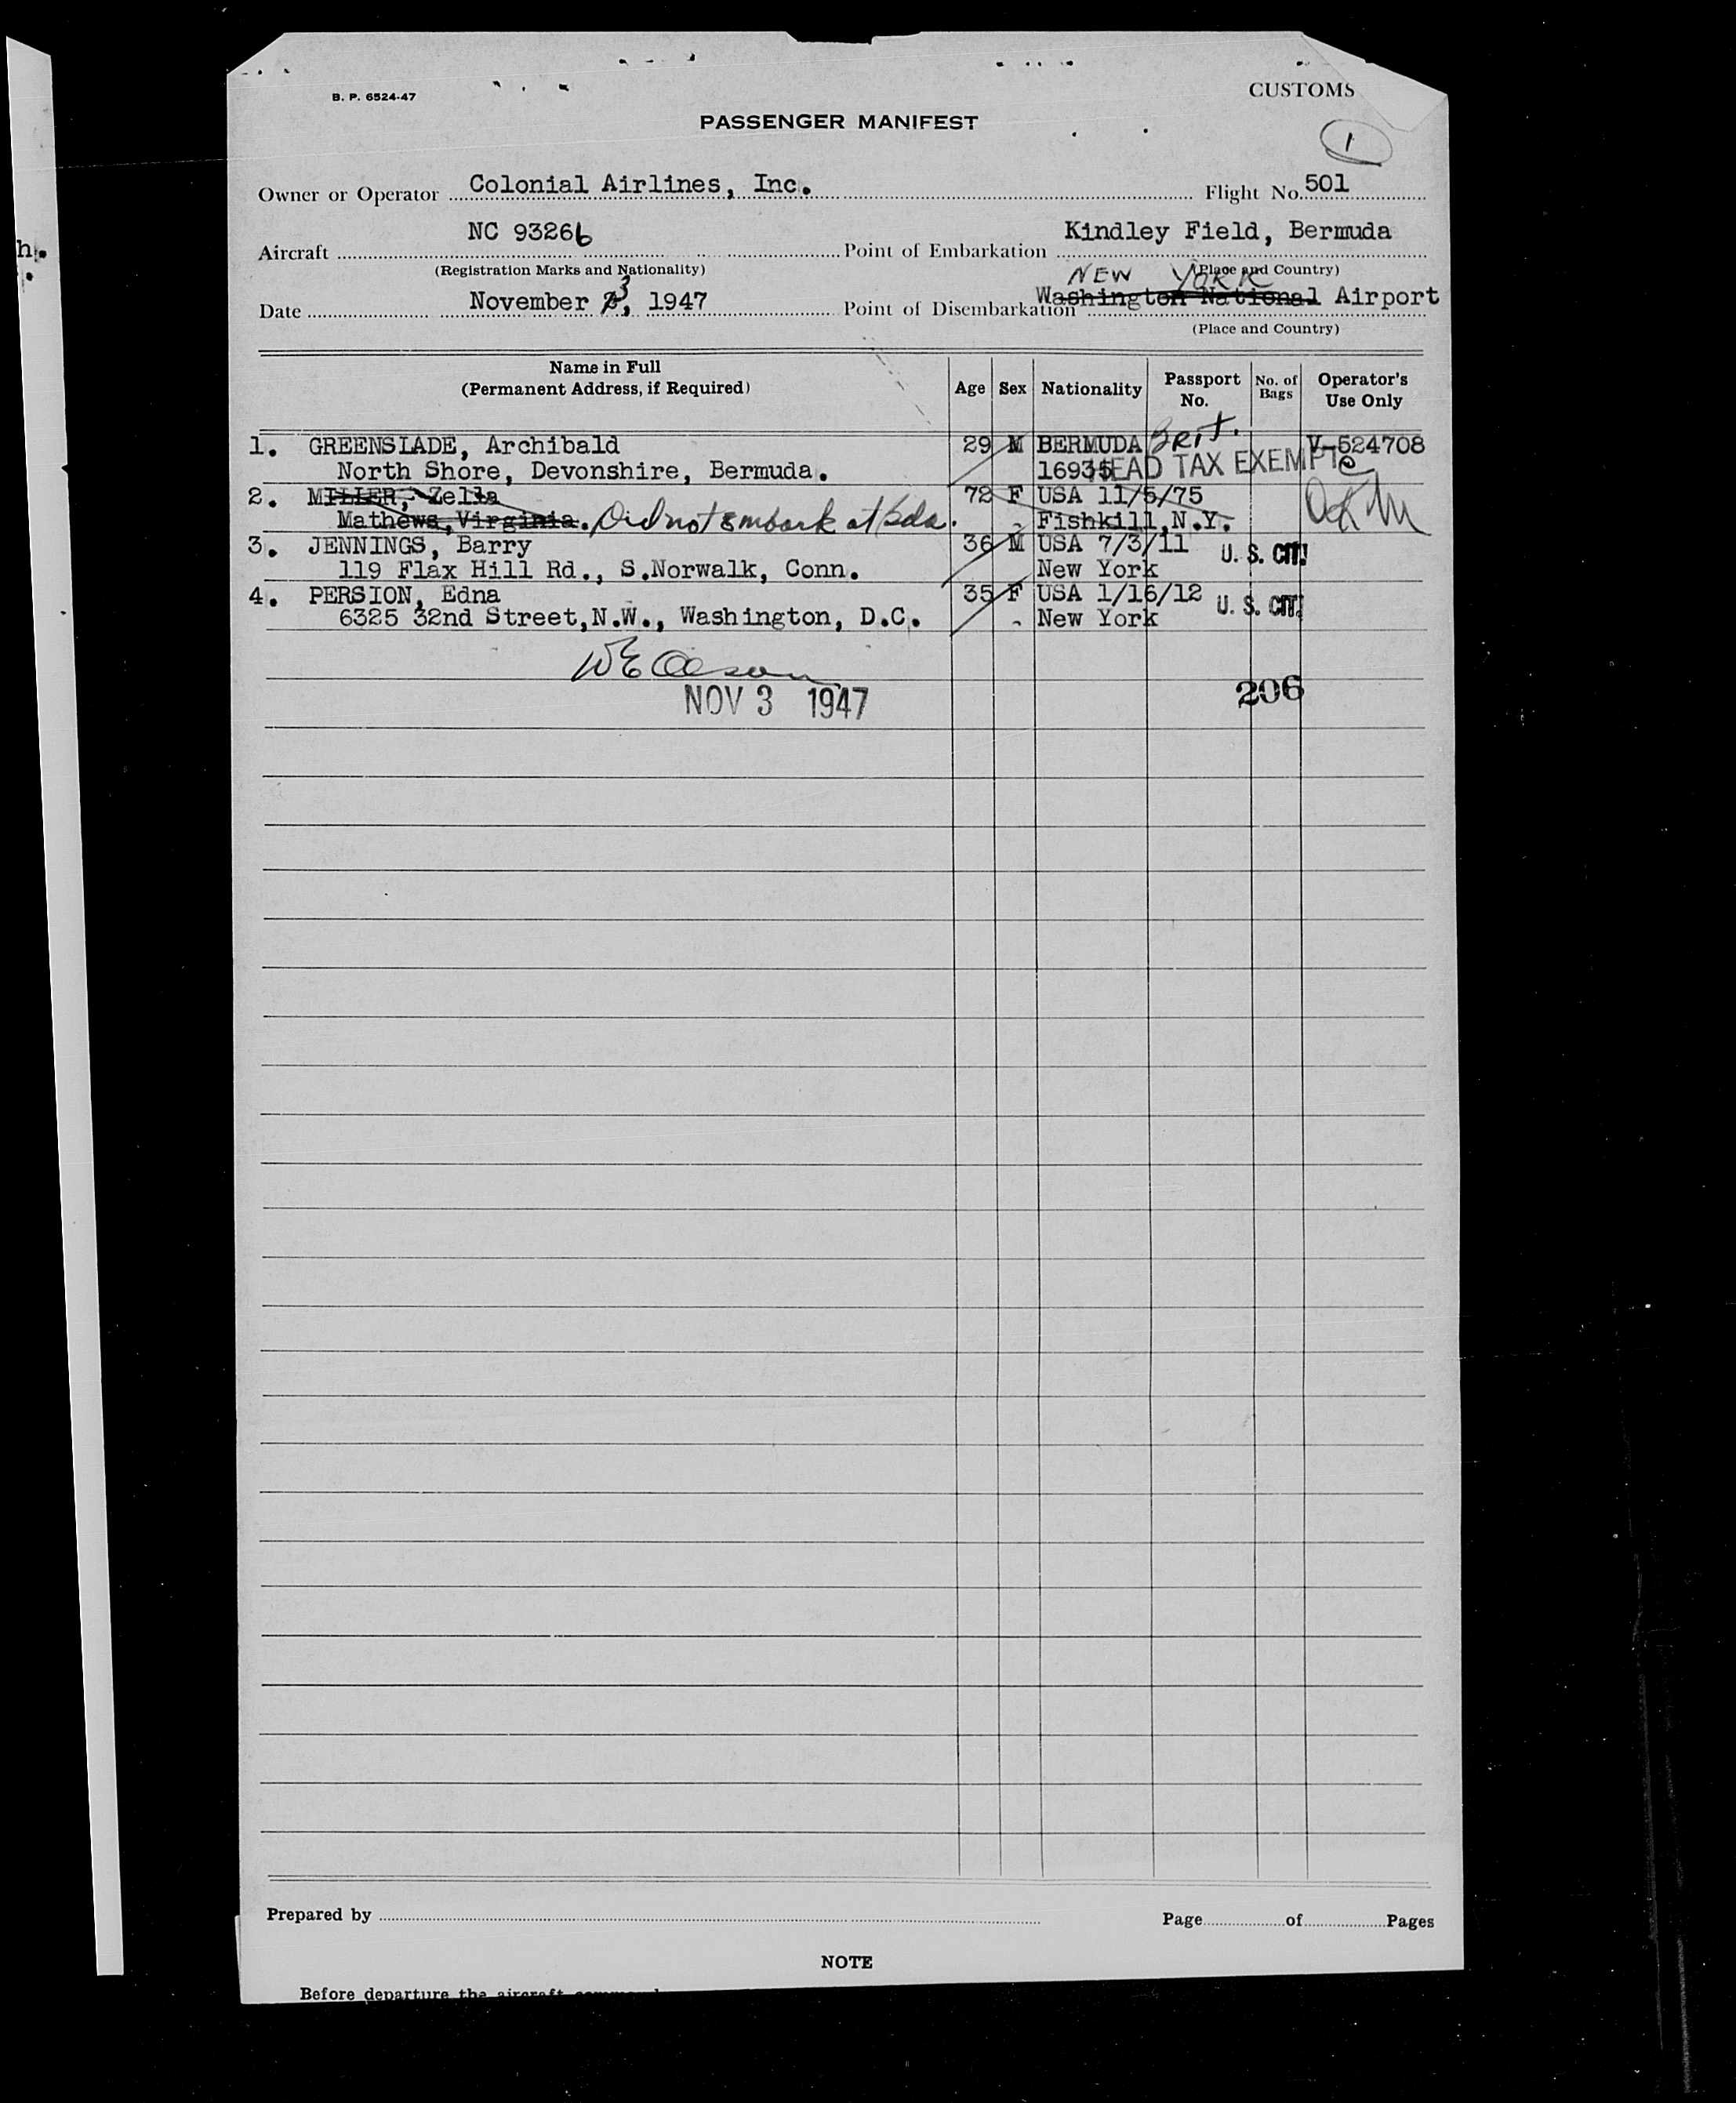 B. P. 6524-47
CUSTOMS
PASSENGER MANIFEST
1
Owner or Operator Colonial Airlines, Inc. Flight No. 501
Aircraft NC 93266 Point of Embarkation Kindley Field, Bermuda
(Registration Marks and Nationality) (Place and Country)
NEW YORK
Date November 3, 1947 Point of Disembarkation Washington National Airport
(Place and Country)
Name in Full (Permanent Address, if Required) Age Sex Nationality Passport No. No. of Bags Operator's Use Only
1. GREENSLADE, Archibald 29 M BERMUDA Brit. V-524708
North Shore, Devonshire, Bermuda. HEAD TAX EXEMPT
2. MILLER, Zella 72 F USA 11/5/75
Mathews, Virginia. Did not embark at Bda. Fishkill, N.Y.
3. JENNINGS, Barry 36 M USA 7/3/11 U. S. CIT.
119 Flax Hill Rd., S.Norwalk, Conn. New York
4. PERSION, Edna 35 F USA 1/16/12 U. S. CIT.
6325 32nd Street,N.W., Washington, D.C. New York
NOV 3 1947
206
Prepared by Page of Pages
NOTE
Before departure the aircraft
h.